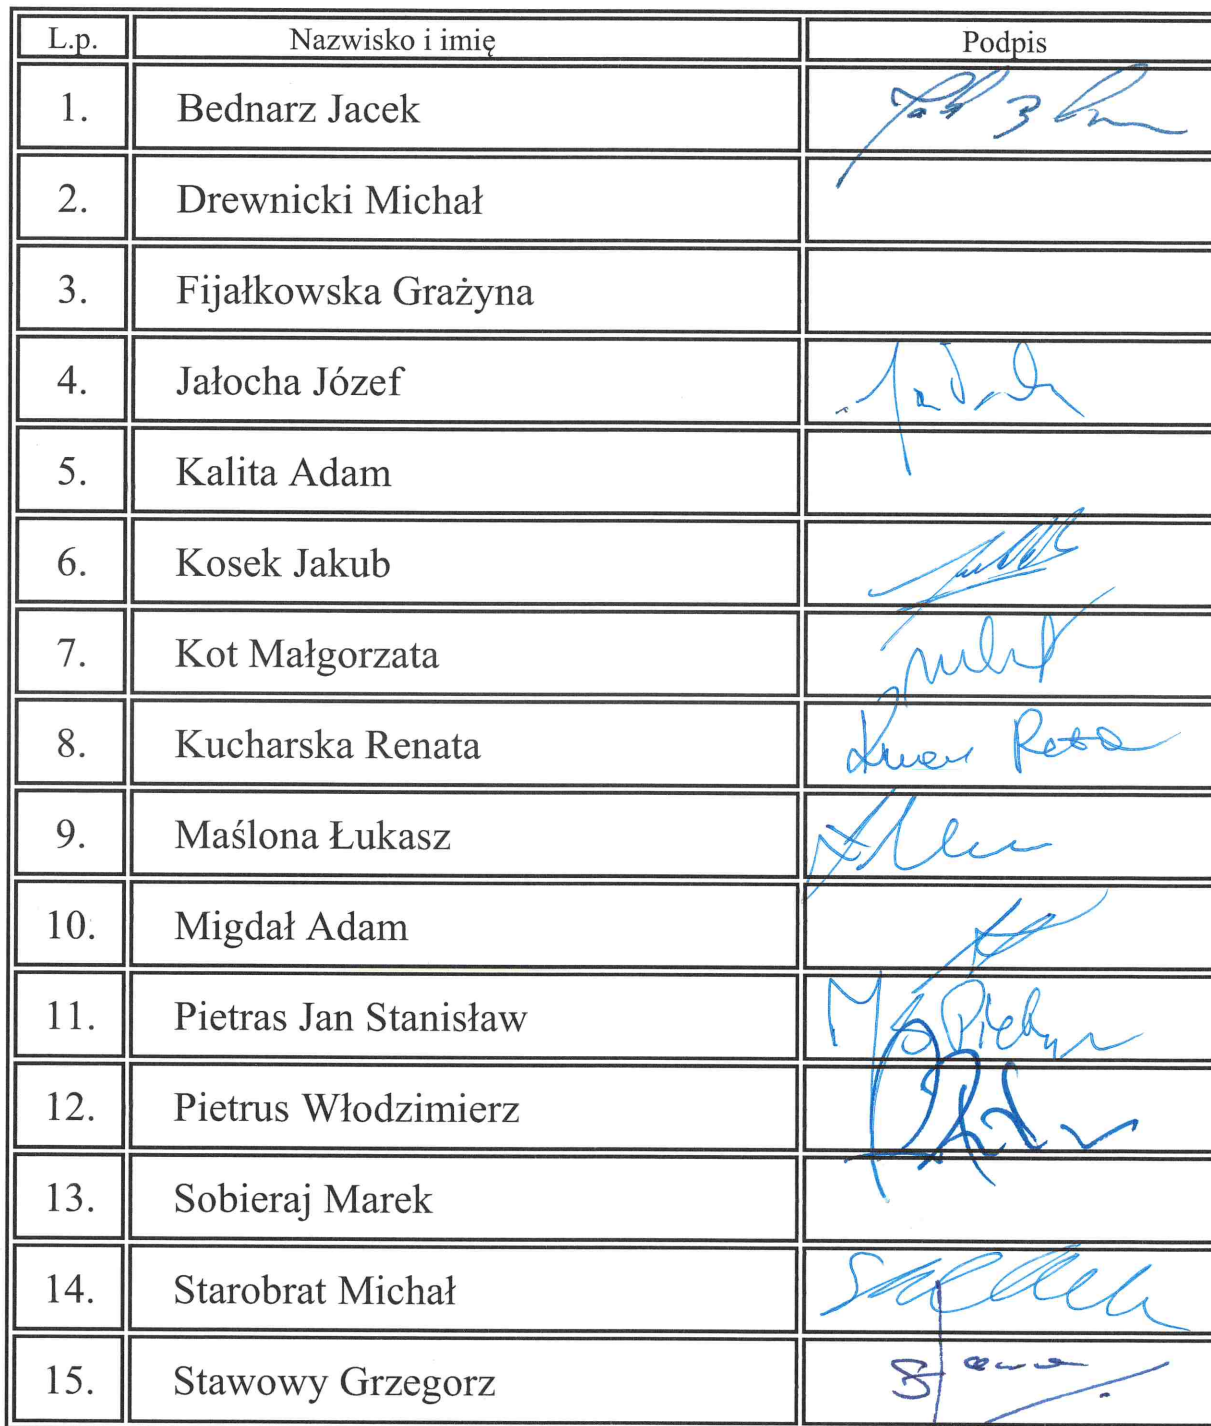 L.p. Nazwisko i imię Podpis
1. Bednarz Jacek
2. Drewnicki Michał
3. Fijałkowska Grażyna
4. Jałocha Józef
5. Kalita Adam
6. Kosek Jakub
7. Kot Małgorzata
8. Kucharska Renata
9. Maślona Łukasz
10. Migdał Adam
11. Pietras Jan Stanisław
12. Pietrus Włodzimierz
13. Sobieraj Marek
14. Starobrat Michał
15. Stawowy Grzegorz